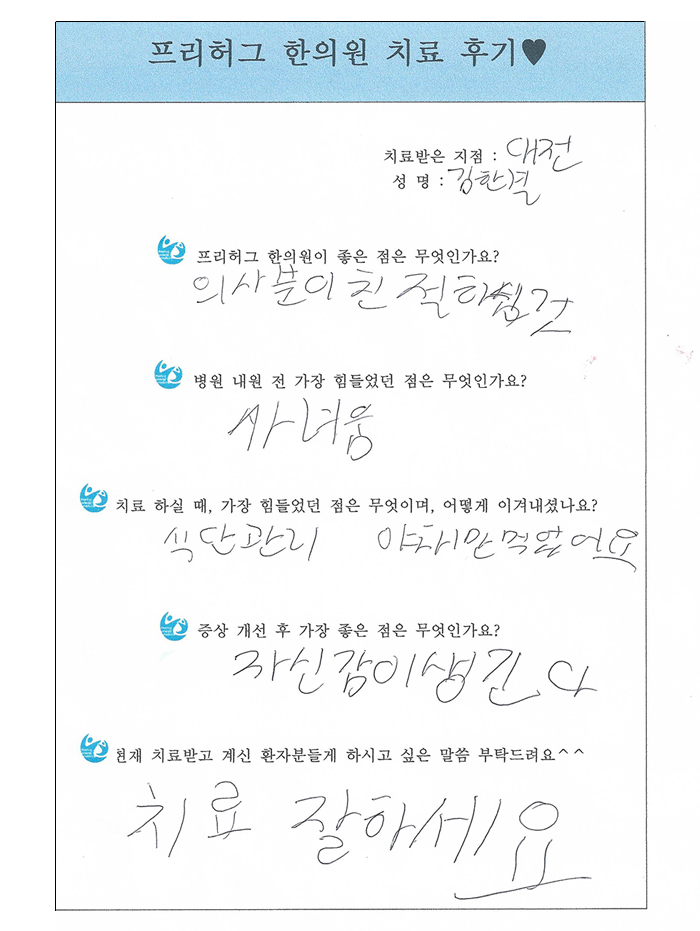 프리허그 한의원 치료 후기♥
치료받은 지점 : 대전
성 명 : 김한열
프리허그 한의원이 좋은 점은 무엇인가요?
의사분이 친절하심 것
병원 내원 전 가장 힘들었던 점은 무엇인가요?
싸녀움
치료 하실 때, 가장 힘들었던 점은 무엇이며, 어떻게 이겨내셨나요?
식단관리 야채만먹었어요
증상 개선 후 가장 좋은 점은 무엇인가요?
자신감이생긴다
현재 치료받고 계신 환자분들게 하시고 싶은 말씀 부탁드려요^^
치료 잘하세요